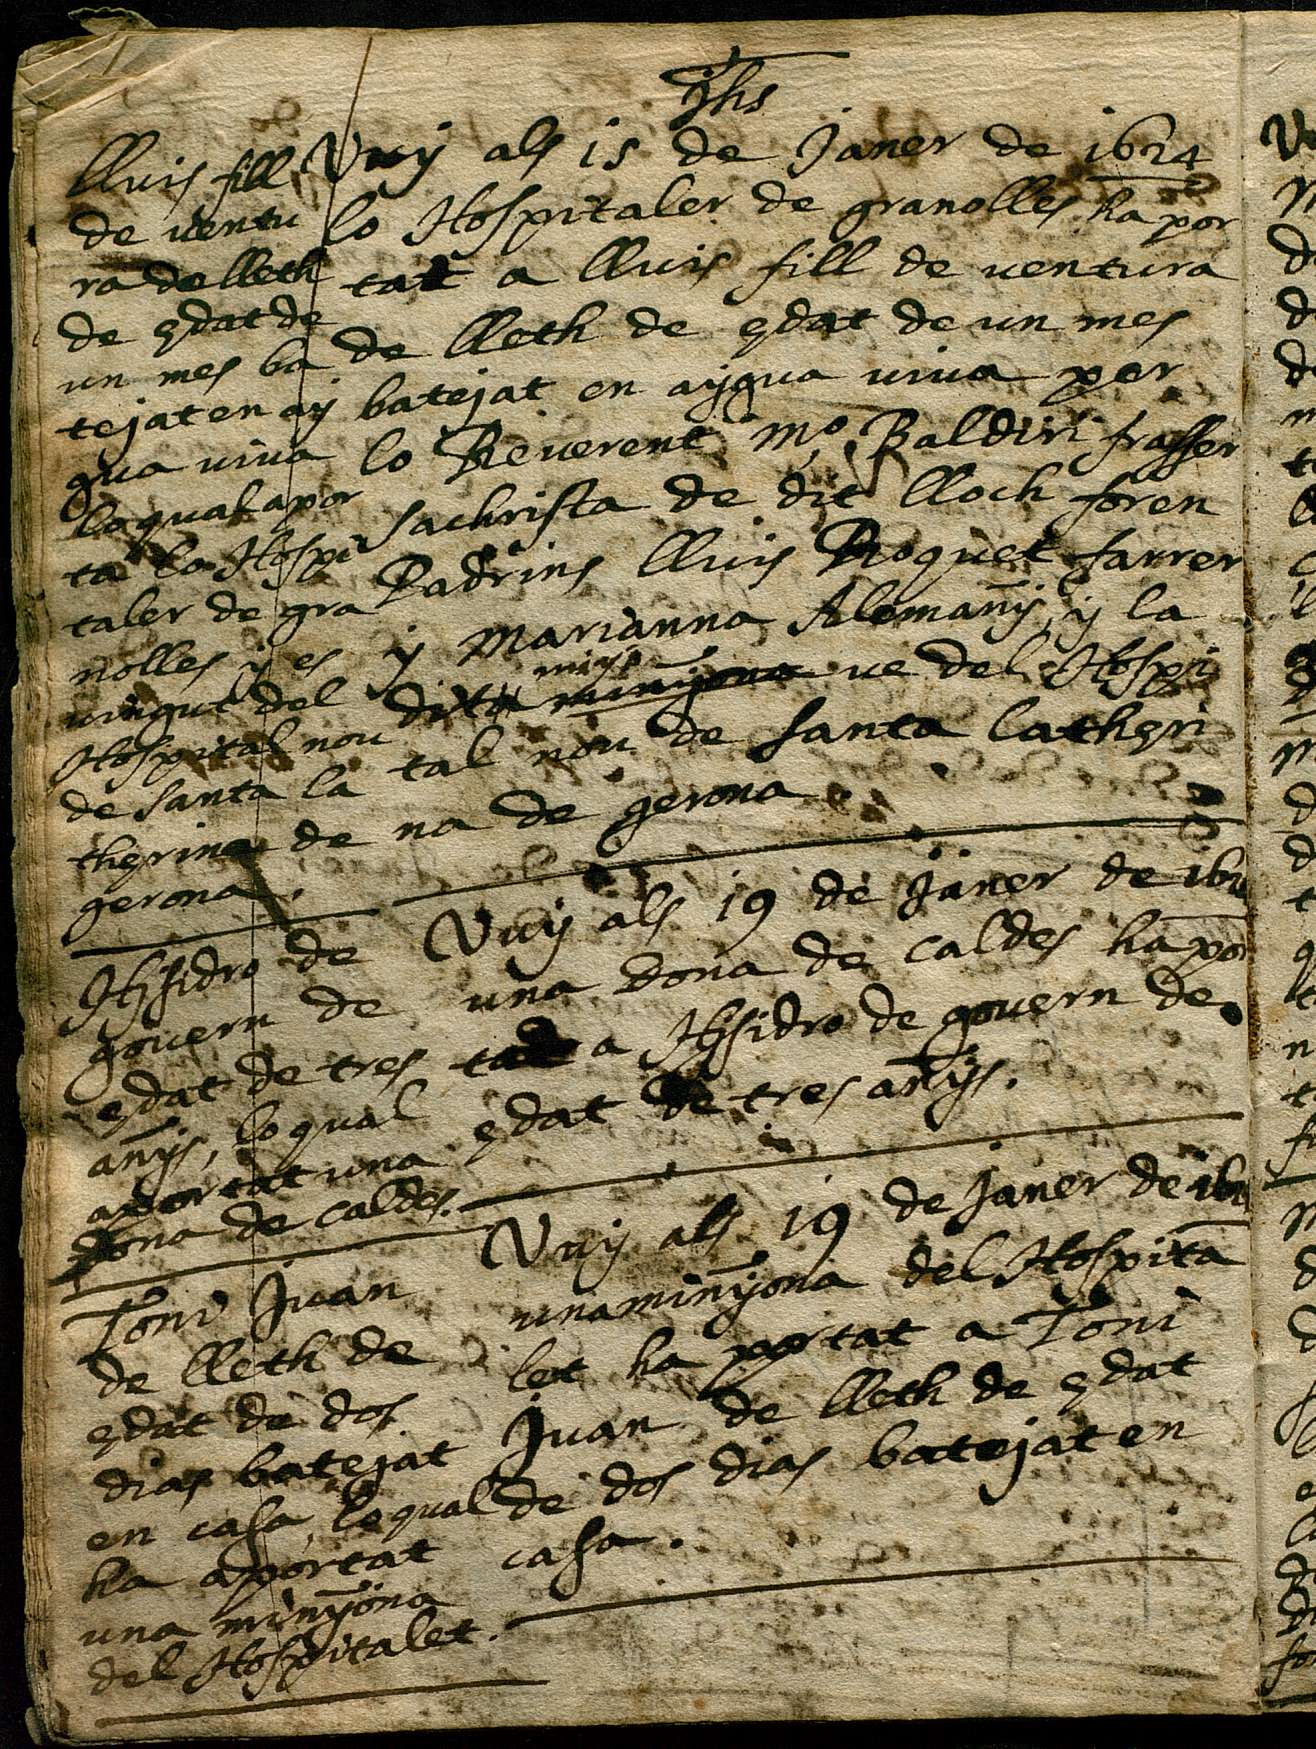 Jhs
lluis fill
de ventu
ra de lleth
de edat de
un mes ba
tejat en ay
gua viva
lo qual apor
ta lo Hospi
taler de gra
nolles y es
vingut del
Hospital nou
de santa Ca
therina de
gerona.
Vuy als 15 de Janer de 1624
lo Hospitaler de granolles ha por
tat a lluis fill de ventura
de lleth de edat de un mes
batejat en aygua viva per
lo Reverent mº Baldiri frasser
sachrista de dit lloch foren
Padrins lluis Roquet farrer
y Marianna Alemañy, y la
dita minyona ve del Hospi
tal nou de santa Catheri
na de gerona.
Hisidro de
govern de
edat de tres
añys, lo qual
aportat una
dona de caldes.
Vuy als 19 de Janer de 162
una dona de caldes ha por
tat a Hisidro de govern de
edat de tres añys.
Toni Juan
de lleth de
edat de dos
dias batejat
en casa, lo qual
ha aportat
una minyona
del Hospitalet.
Vuy als 19 de Janer de 162
una minyona del Hospita
let ha portat a Toni
Juan de lleth de edat
de dos dias batejat en
casa.